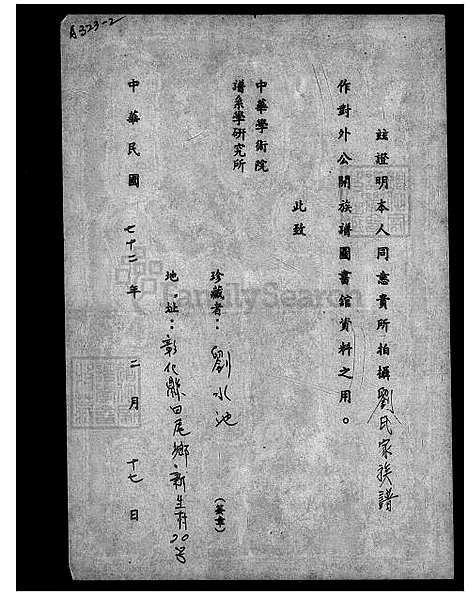 A323-2
茲證明本人同意貴所拍攝劉氏家族譜
作對外公開族譜圖書館資料之用。
此致
中華學術院
譜系學研究所
珍藏者：劉水池
（簽章）
地址：彰化縣田尾鄉新生村20号
中華民國 七十二年 二月 十七日
FamilySearch